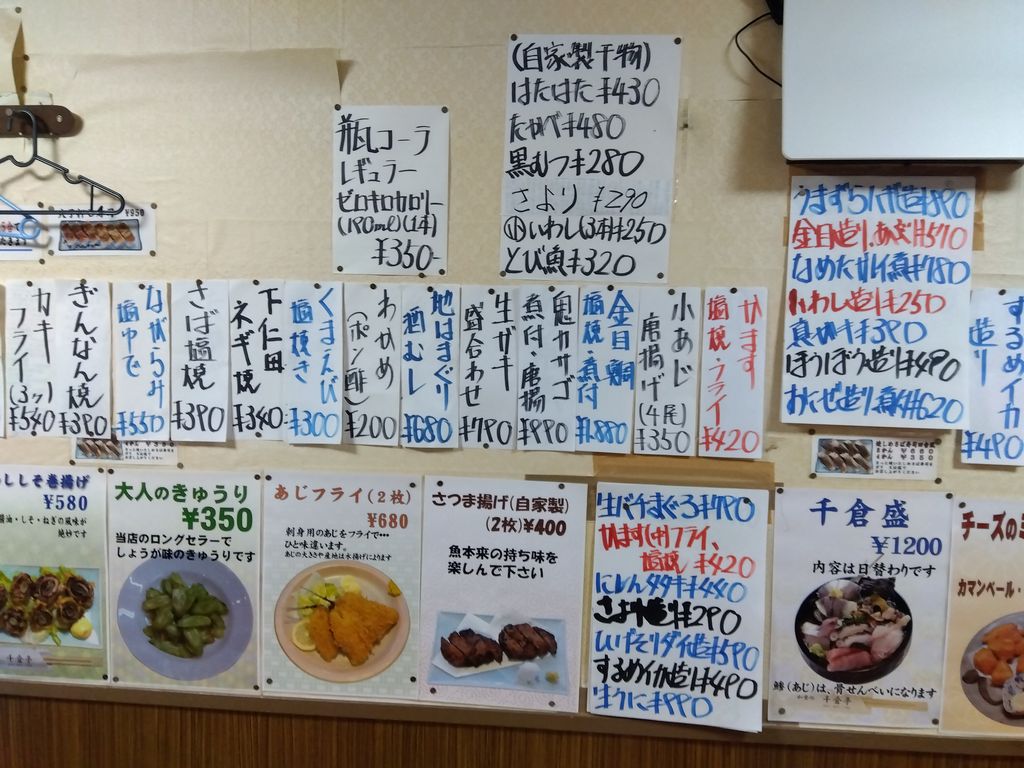 瓶コーラ
レギュラー
ゼロキロカロリー
(190ml)(1本)
¥350-
(自家製干物)
はたはた ¥430
たかべ ¥480
黒むつ ¥280
さより ¥290
小いわし(3本)¥250
とび魚 ¥320
¥950
うまずらハゲ造 ¥890
金目造り、あら炊 ¥570
なめたガレイ煮 ¥780
いわし造 ¥250
真ガキ ¥390
ほうぼう造り ¥490
おにぜ造り、煮付 ¥620
するめイカ
造り
¥490
カキ
フライ(3ヶ)
¥540
ぎんなん焼
¥390
ながらみ
塩ゆで
¥550
さば塩焼
¥390
下仁田
ネギ焼
¥340
くまえび
塩焼き
¥300
わかめ
(ポン酢)
¥200
地はまぐり
酒むし
¥680
生ガキ
盛合わせ
¥790
鬼カサゴ
煮付・唐揚
¥990
金目鯛
塩焼・煮付
¥1,880
小あじ
唐揚げ
(4尾)
¥350
かます
塩焼・フライ
¥420
ししそ巻揚げ
¥580
醤油・しそ・ねぎの風味が
絶妙です
大人のきゅうり
¥350
当店のロングセラーで
しょうが味のきゅうりです
あじフライ(2枚)
¥680
刺身用のあじをフライで…
ひと味違います。
あじの大きさや産地は水揚げによります
さつま揚げ(自家製)
(2枚)¥400
魚本来の持ち味を
楽しんで下さい
生バチまぐろ ¥790
かます(中)フライ、
塩焼 ¥420
にしんタタキ ¥440
さより造 ¥290
しいげそりダイ造 ¥590
するめイカ造り ¥490
生うに ¥990
千倉盛
¥1200
内容は日替わりです
鯵(あじ)は、骨せんべいになります
チーズの
カマンベール・